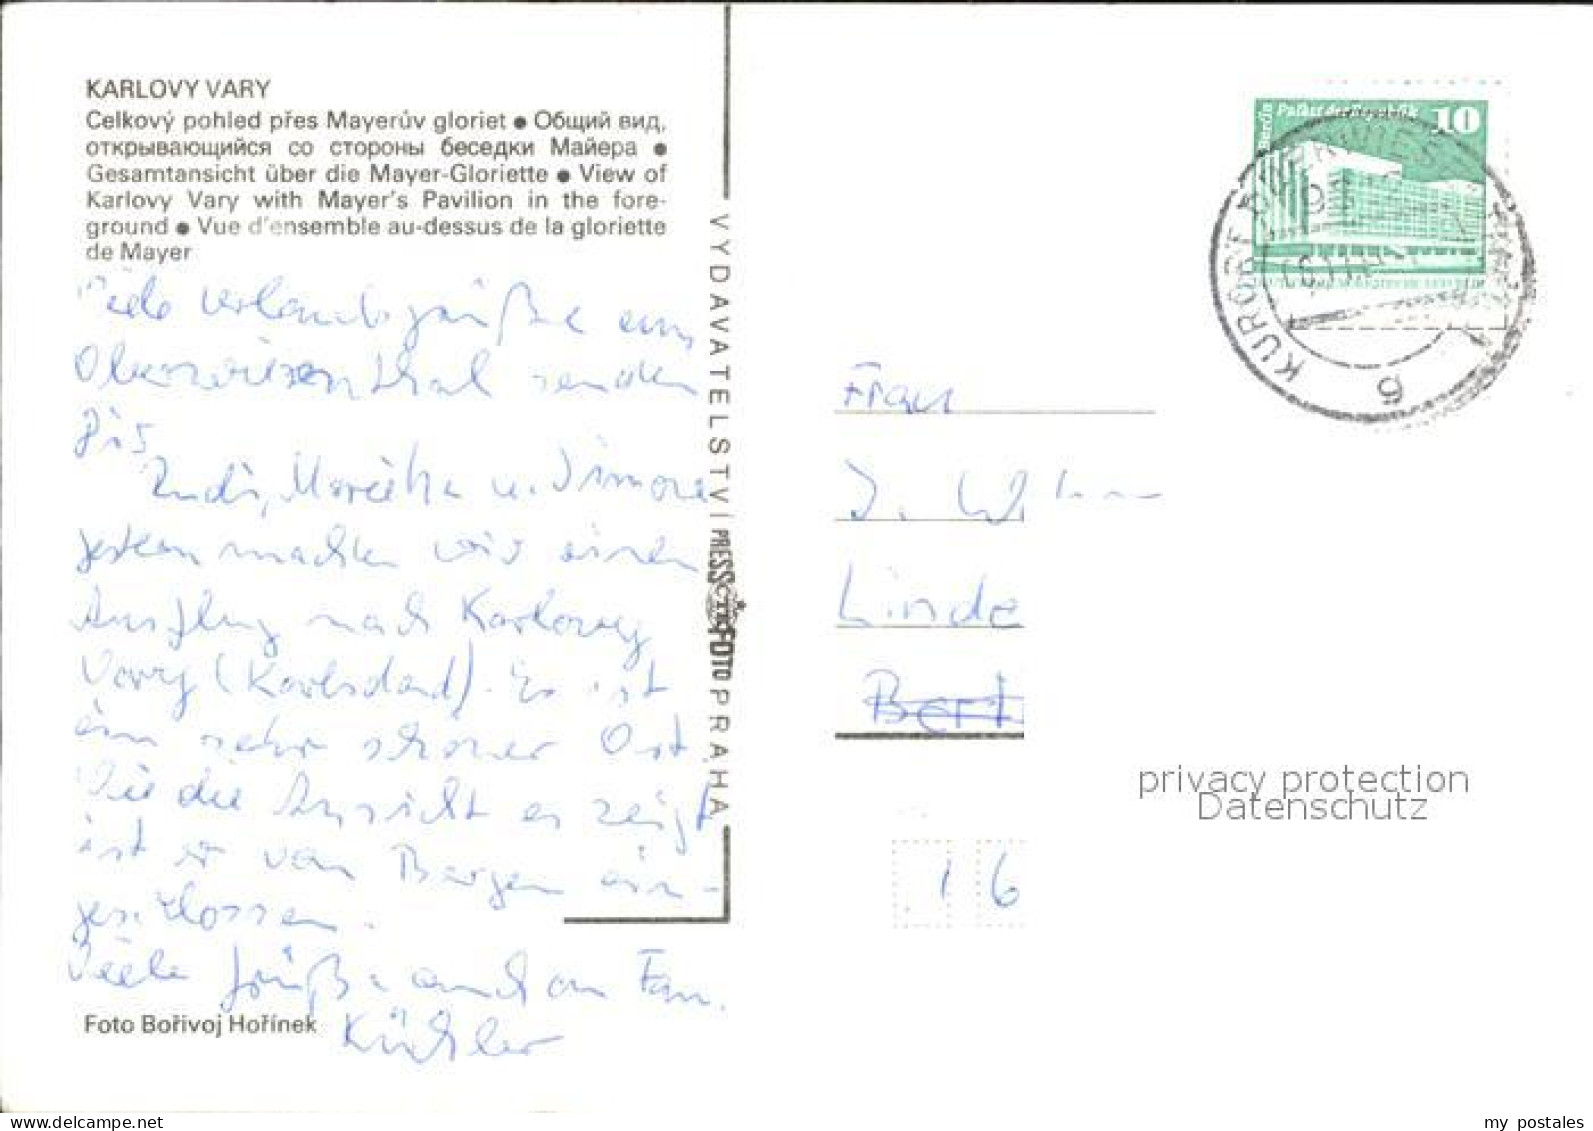 KARLOVY VARY
Celkový pohled přes Mayerův gloriet ● Общий вид,
открывающийся со стороны беседки Майера ●
Gesamtansicht über die Mayer-Gloriette ● View of
Karlovy Vary with Mayer's Pavilion in the fore-
ground ● Vue d'ensemble au-dessus de la gloriette
de Mayer
Viele Urlaubsgrüße aus
Oberwiesenthal senden
Dir
Rudi, u. Simone
gestern machten wir einen
Ausflug nach Karlovy
Vary (Karlsbad). Es ist
ein sehr schöner Ort
Wie die Ansicht es zeigt
ist er von Bergen ein-
geschlossen.
Viele Grüße auch an Fam.
Küchler
Foto Bořivoj Hořínek
VYDAVATELSTVÍ PRESSFOTO PRAHA
Berlin Palast der Republik 10
KURORT
6
Frau
J. W
Linde
Berl
16
privacy protection
Datenschutz
the-best-in-the-west
my postales